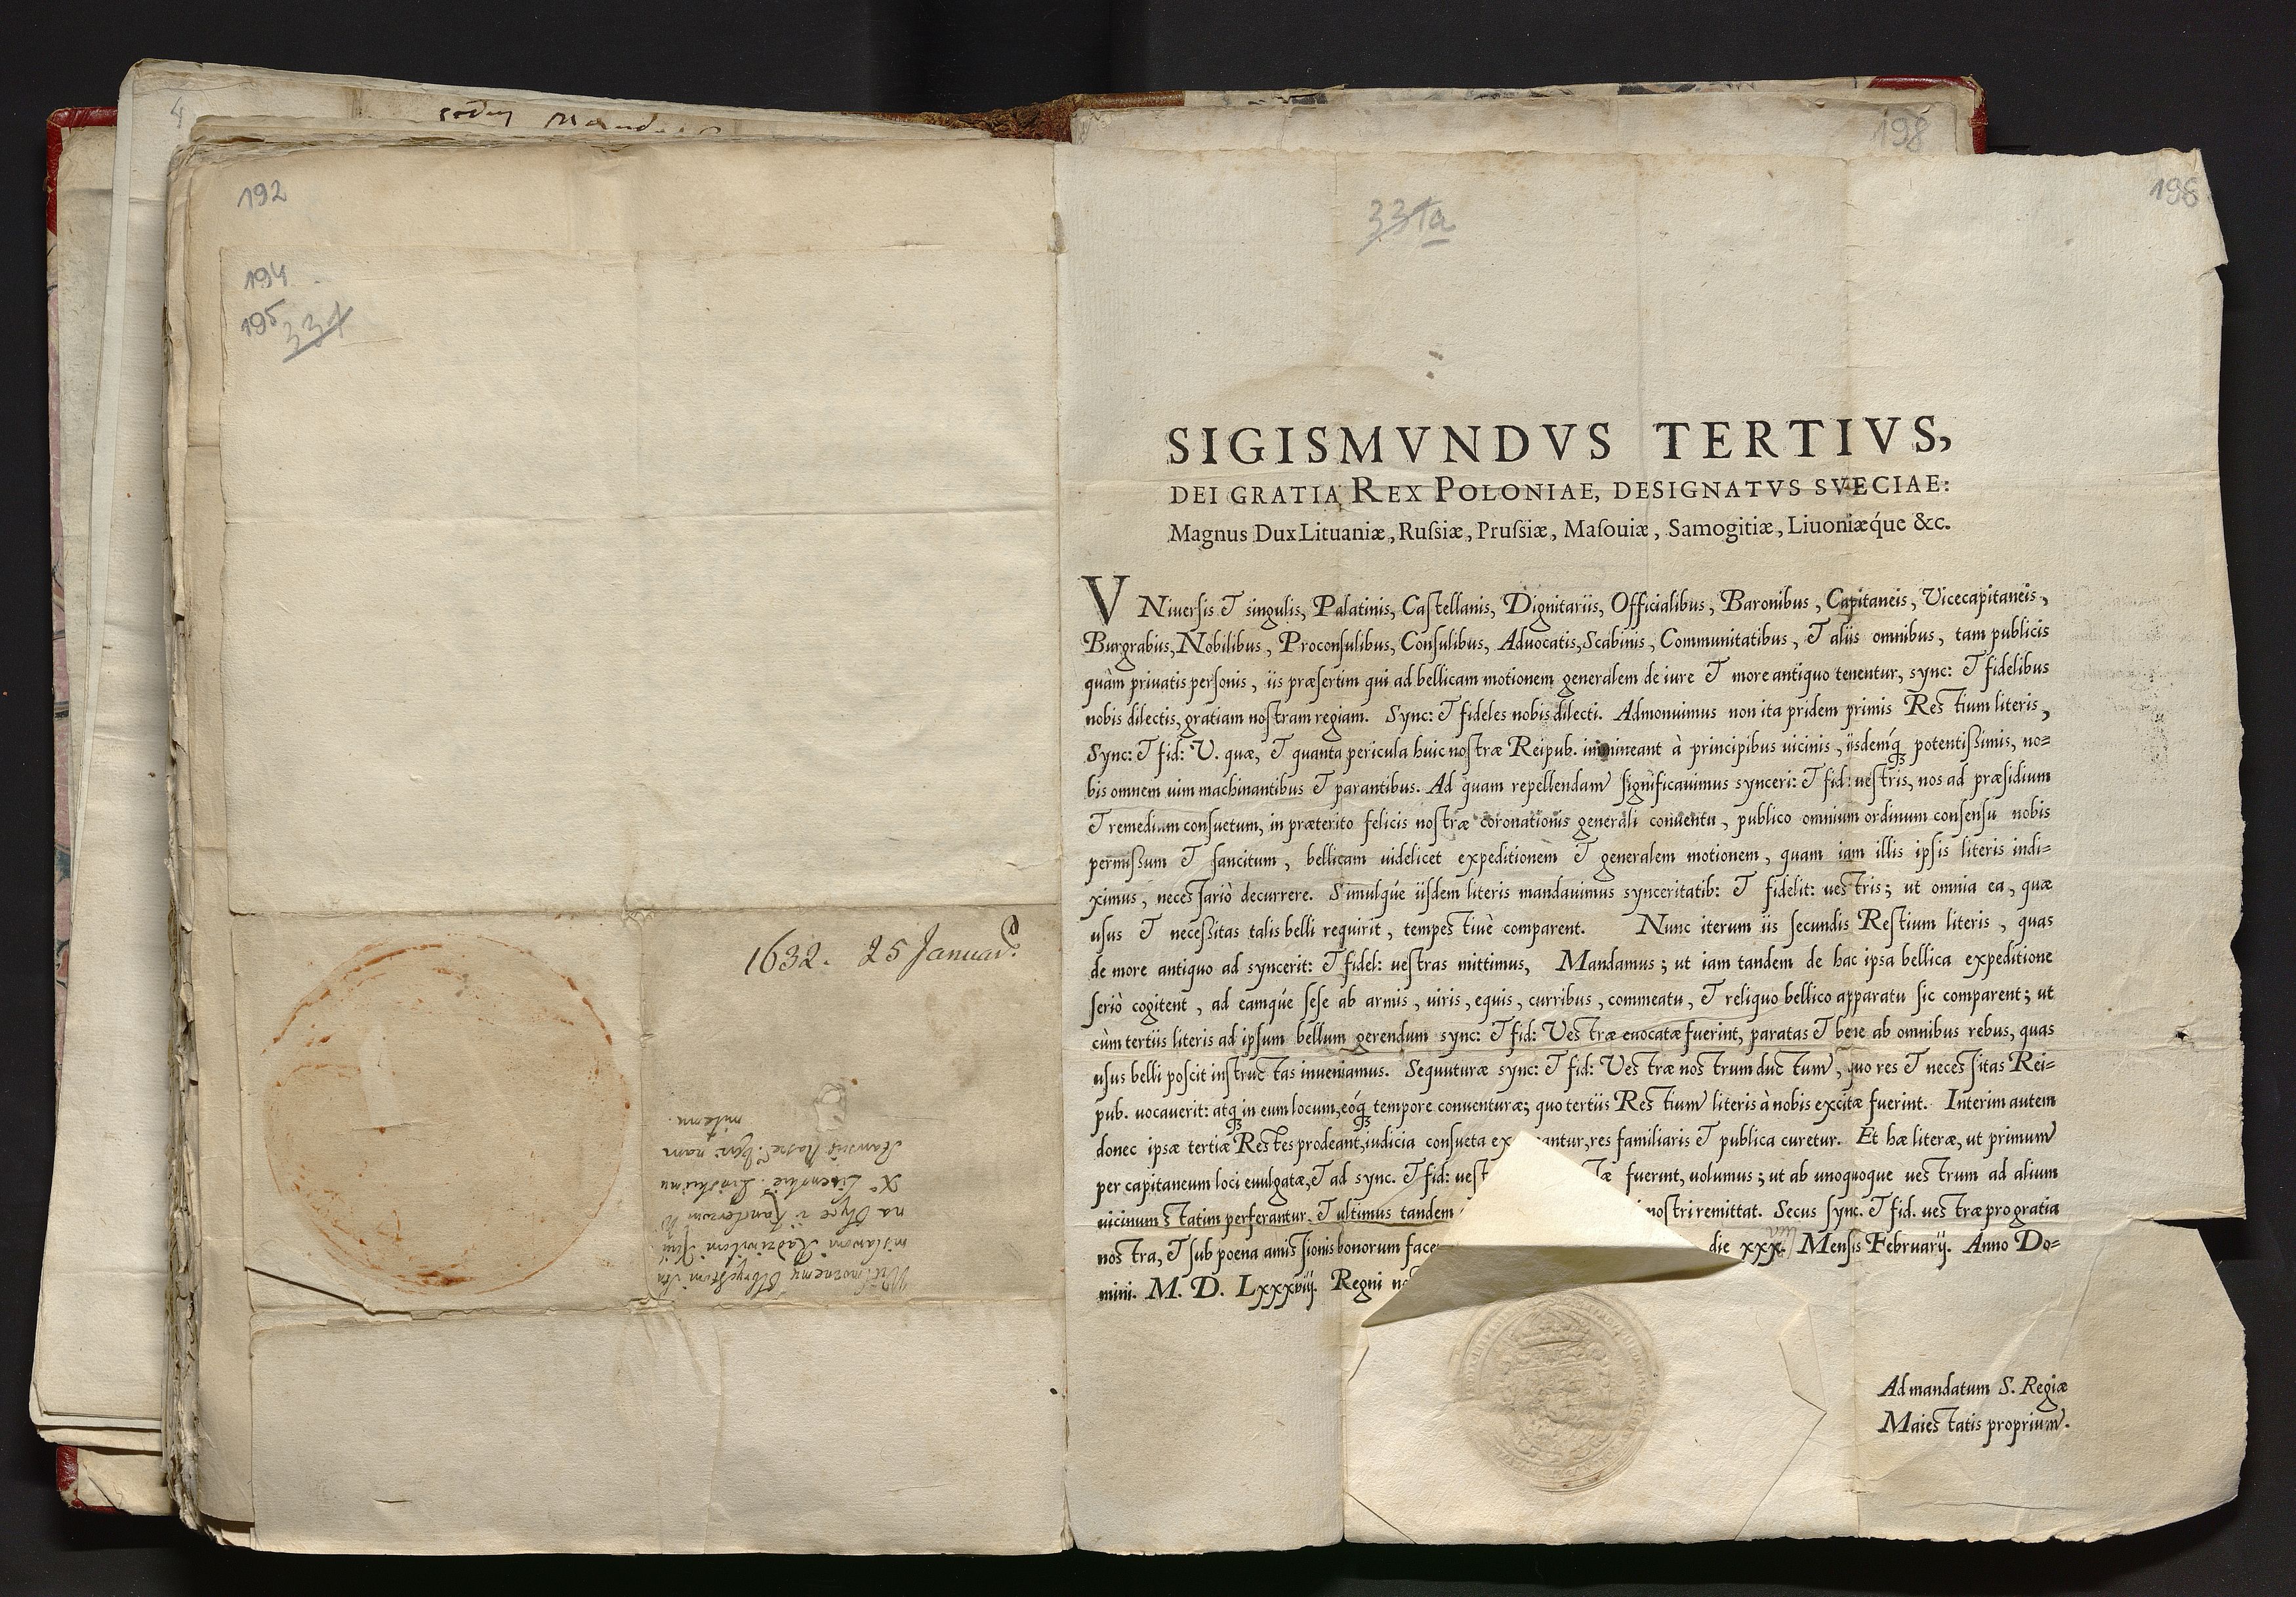 4
192
194
195
331
1632. 25 Januar.
198
196
331a
SIGISMVNDVS TERTIVS,
DEI GRATIA REX POLONIAE, DESIGNATVS SVECIAE:
Magnus Dux Lituaniæ, Ruſsiæ, Pruſsiæ, Maſouiæ, Samogitiæ, Liuoniæq́ue &c.
VNiuerſis & singulis, Palatinis, Caſtellanis, Dignitariis, Officialibus, Baronibus, Capitaneis, Vicecapitaneis,
Burgrabiis, Nobilibus, Proconſulibus, Conſulibus, Aduocatis, Scabinis, Communitatibus, & aliis omnibus, tam publicis
quàm priuatis perſonis, iis præſertim qui ad bellicam motionem generalem de iure & more antiquo tenentur, sync: & fidelibus
nobis dilectis, gratiam noſtram regiam. Sync: & fideles nobis dilecti. Admonuimus non ita pridem primis Reſtium literis,
Sync: & fid: V. quæ, & quanta pericula huic noſtræ Reipub. immineant à principibus uicinis, iisdemq́ꝫ potentiſsimis, no=
bis omnem uim machinantibus & parantibus. Ad quam repellendam ſignificauimus synceri: & fid: ueſtris, nos ad præſidium
& remedium conſuetum, in præterito felicis noſtræ coronationis generali conuentu, publico omnium ordinum conſenſu nobis
permiſsum & ſancitum, bellicam uidelicet expeditionem & generalem motionem, quam iam illis ipſis literis indi=
ximus, neceſſariò decurrere. Simulq́ue iiſdem literis mandauimus synceritatib: & fidelit: ueſtris; ut omnia ea, quæ
uſus & neceſsitas talis belli requirit, tempeſtiuè comparent. Nunc iterum iis ſecundis Reſtium literis, quas
de more antiquo ad syncerit: & fidel: ueſtras mittimus, Mandamus; ut iam tandem de hac ipsa bellica expeditione
ſeriò cogitent, ad eamq́ue ſeſe ab armis, uiris, equis, curribus, commeatu, & reliquo bellico apparatu ſic comparent; ut
cùm tertiis literis ad ipſum bellum gerendum sync: & fid: Veſtræ euocatæ fuerint, paratas & bene ab omnibus rebus, quas
uſus belli poſcit inſtructas inueniamus. Sequuturæ sync: & fid: Veſtræ noſtrum ductum, quo res & neceſſitas Rei=
pub. uocauerit: atqꝫ in eum locum, eoq́ꝫ tempore conuenturæ; quo tertiis Reſtium literis à nobis excitæ fuerint. Interim autem
donec ipsæ tertiæ Reſtes prodeant, iudicia conſueta ex antur, res familiaris & publica curetur. Et hæ literæ, ut primum
per capitaneum loci euulgatæ, & ad sync. & fid: ueſt tæ fuerint, uolumus; ut ab unoquoque ueſtrum ad alium
uicinum ſtatim perferantur. & ultimus tandem noſtri remittat. Secus ſync. & fid. ueſtræ pro gratia
noſtra, & ſub poena amiſſionis bonorum face die xxx. Menſis Februarij. Anno Do=
mini. M. D. Lxxxviij. Regni no
Ad mandatum S. Regiæ
Maieſtatis proprium.